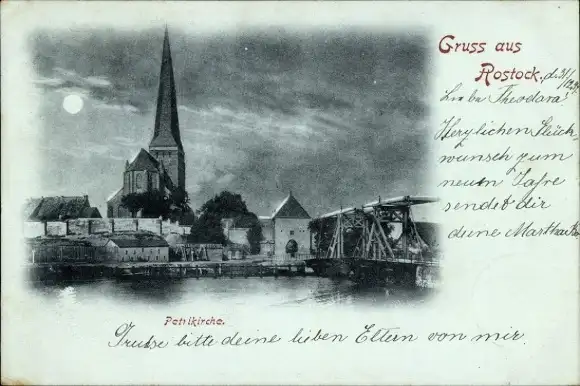 Gruss aus
Rostock, d. 31/12.
Liebe Theodora!
Herzlichen Glück-
wunsch zum
neuen Jahre
sendet dir
deine Martha
Petrikirche.
Grüße bitte deine lieben Eltern von mir